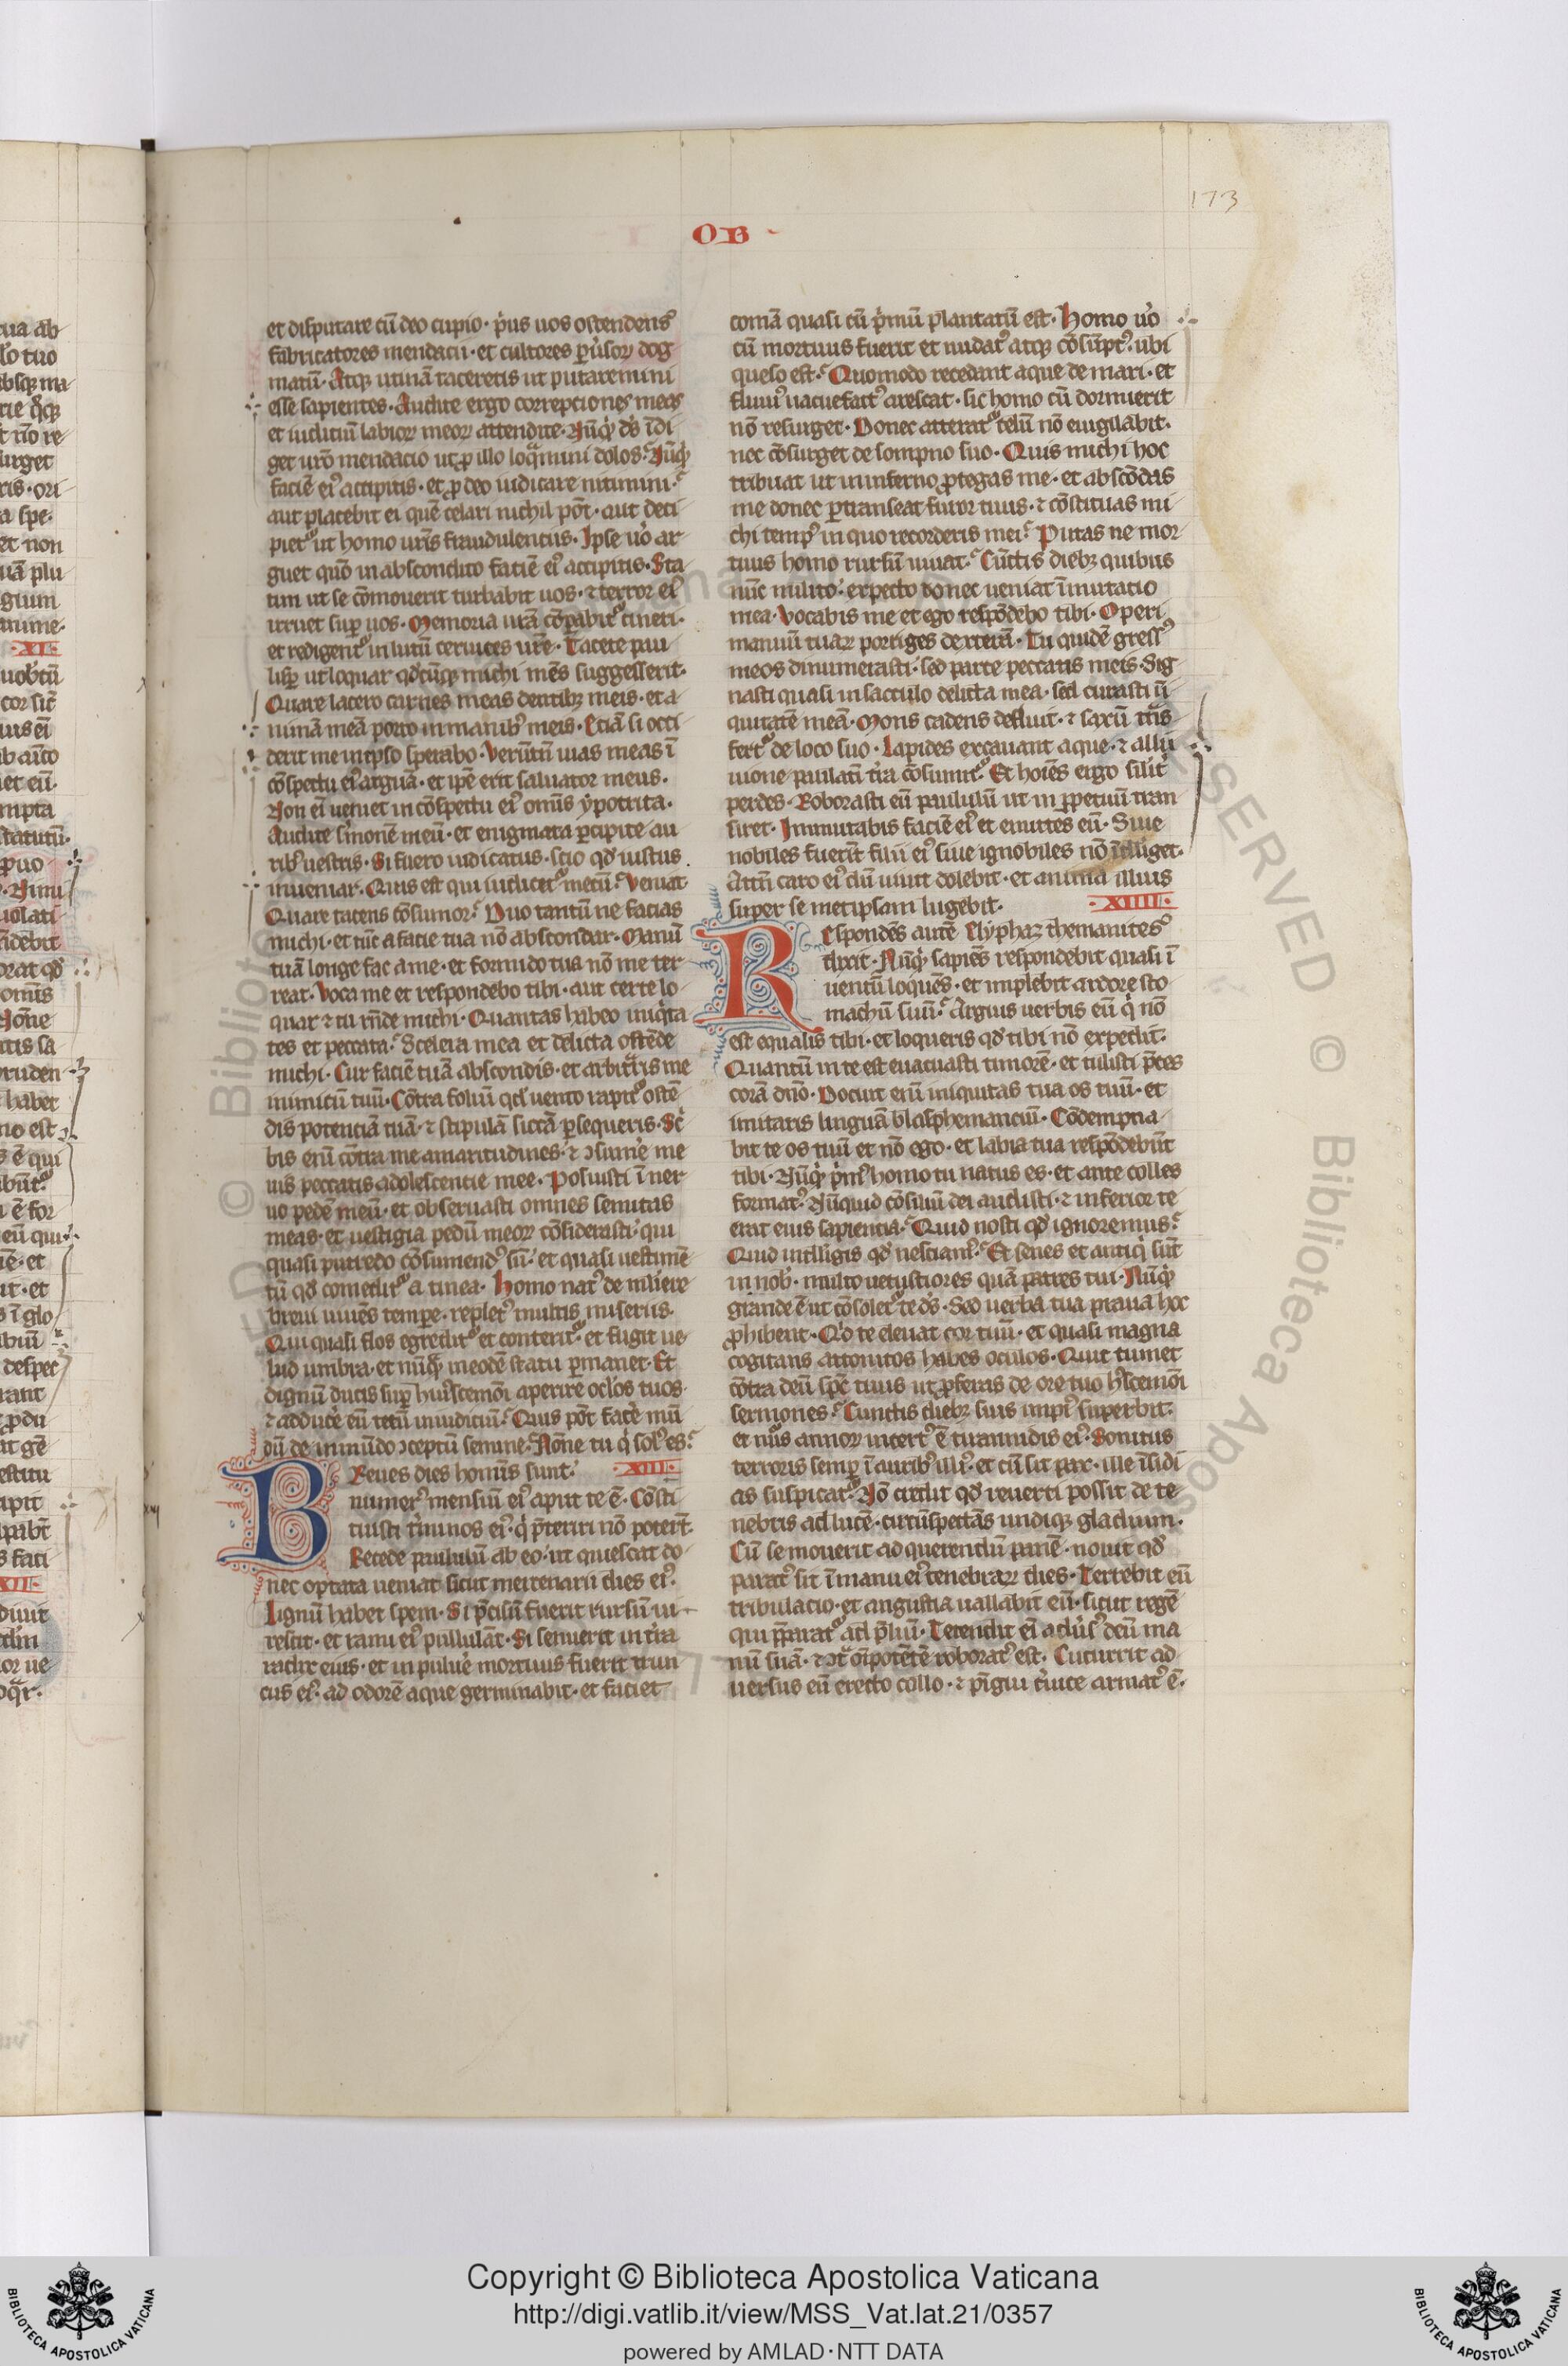 173
OB
et disputare cū deo cupio · p̍us uos ostendens
fabricatores mendacii · et cultores ꝑu̍soꝝ dog
matū · Atqꝫ utinā taceretis ut putaremini
esse sapientes · Audite ergo correpciones meas
et iudiciū labioꝝ meoꝝ attendite · Nūq̍d ds̄ īdi
get uro᷒ mendacio ut ꝓ illo loq̄mini dolos · Nūq̍d
faciē ei᷒ accipitis · et ꝓ deo iudicare nitimini ·
aut placebit ei quē celari nichil pōt · aut deci
piet᷒ ut homo uris̄ fraudulenciis · Ipse uo̍ ar
guet quō in abscondito faciē ei᷒ accipitis · Sta
tim ut se cōmouerit turbabit uos · ⁊ terror ei᷒
irruet suꝑ uos · Memoria ura᷒ cōꝑabit᷒ cineri ·
et redigent᷒ in lutū ceruices ure᷒ · Tacete pau
lisꝑ ut loquar qd̍cūqꝫ michi mēs suggesserit ·
Quare lacero carnes meas dentibꝫ meis · et a
nimā meā porto in manib᷒ meis · Eciā si occi
derit me in ipso sperabo · Verūtn̄ uias meas ī
cōspectu ei᷒ arguā · et ipē erit saluator meus ·
Non ei̅ ueniet in cōspectu ei᷒ omis̄ ypocrita ·
Audite s̍monē meū · et enigmata ꝑcipite au
rib᷒ uestris · Si fuero iudicatus · scio qd̍ iustus
inueniar · Quis est qui iudicet᷒ mecū · Veniat
Quare tacens cōsumor · Duo tantū ne facias
michi · et tūc a facie tua nō abscondar · Manū
tuā longe fac a me · et formido tua nō me ter
reat · Voca me et respondebo tibi · aut certe lo
quar ⁊ tu rn̄de michi · Quantas habeo iniq̍ta
tes et peccata · Scelera mea et delicta ostēde
michi · Cur faciē tuā abscondis · et arbitr̄ris me
inimicū tuū · Cōtra foliū qd̍ uento rapit᷒ ostē
dis potenciā tuā · ⁊ stipulā siccā ꝑsequeris · Sc̍
bis enī cōtra me amaritudines · ⁊ ɔsume̍ me
uis peccatis adolescentie mee · Posuisti ī ner
uo pedē meū · et obseruasti omnes semitas
meas · et uestigia pedū meoꝝ cōsiderasti · qui
quasi putredo cōsumend᷒ sū · et quasi uestimē
tū qd̍ comedit᷒ a tinea · Homo nat᷒ de muliere
breui uiuēs tempe · replet᷒ multis miseriis ·
Qui quasi flos egredit᷒ et conterit᷒ · et fugit ue
lud umbra · et nūq̄ in eodē statu ꝑmanet · Et
dignū ducis suꝑ hui᷒scemōi aperire oc̍los tuos ·
⁊ adduce̍ eū tecū in iudiciū · Quis pōt face̍ mū
dū de inmūdo ɔceptū semine · Nōne tu q̍ sol᷒ es ·
Breues dies homīs sunt · XIIII ·
numer᷒ mensiū ei᷒ aput te ē · Cōsti
tuisti t̍minos ei᷒ · q̍ p̄teriri nō poterūt
Recede paululū ab eo · ut quiescat do
nec optata ueniat sicut mercenarii dies ei᷒ ·
Lignū habet spem · Si p̄cisū fuerit rursū ui
rescit · et rami ei᷒ pullulāt · Si senuerit in t̍ra
radix eius · et in puluē mortuus fuerit trun
cus ei᷒ · ad odorē aque germinabit · et faciet
comā quasi cū p̍mū plantatū est · Homo uo̍
cū mortuus fuerit et nudat᷒ atqꝫ cōsūpt᷒ · ubi
queso est · Quomodo recedant aque de mari · et
fluui᷒ uacuefact᷒ arescat · sic homo cū dormierit
nō resurget · Donec atterat᷒ celū nō euigilabit ·
nec cōsurget de sompno suo · Quis michi hoc
tribuat ut in inferno ꝓtegas me · et abscōdas
me donec ꝑtranseat furor tuus · ⁊ cōstituas mi
chi temp᷒ in quo recorderis mei · Putas ne mor
tuus homo rursū uiuat · Cūctis diebꝫ quibus
nūc milito · expecto donec ueniat īmutacio
mea · Vocabis me et ego respōdebo tibi · Operi
manuū tuaꝝ porriges dexterā · Tu quidē gress᷒
meos dinumerasti · sed parce peccatis meis · Sig
nasti quasi in sacculo delicta mea · sed curasti ini
quitatē meā · Mons cadens defluit · ⁊ saxū t̄ns
fert᷒ de loco suo · Lapides excauant aque · ⁊ allu
uione paulati̅ t̍ra cōsumit᷒ · Et hoiēs ergo silit̍
perdes · Roborasti eū paululū ut in ꝑpetuū tran
siret · Immutabis faciē ei᷒ et emittes eū · Siue
nobiles fuerīt filii ei᷒ siue ignobiles nō ītelliget ·
Attn̄ caro ei᷒ dū uiuit dolebit · et anima illius
super se metipsam lugebit · XIIII ·
Respondēs autē Elyphaz themanites
dixit · Nūq̍d sapiēs respondebit quasi ī
uentū loquēs · et implebit ardore sto
machū suū · Arguis uerbis eū q̍ nō
est equalis tibi · et loqueris qd̍ tibi nō expedit ·
Quantū in te est euacuasti timorē · et tulisti p̄ces
corā dno᷒ · Docuit enī iniquitas tua os tuū · et
imitaris linguā blasphemanciū · Cōdempna
bit te os tuū et nō ego · et labia tua respōdebūt
tibi · Nūq̍d p̍m᷒ homo tu natus es · et ante colles
format᷒ · Nūquid cōsiliū dei audisti · ⁊ inferior te
erat eius sapiencia · Quid nosti qd̍ ignoremus ·
Quid intelligis qd̍ nesciam᷒ · Et senes et antiq̍ sūt
in nob᷒ · multo uetustiores quā patres tui · Nūq̍d
grande ē ut cōsolet᷒ te ds̄ · Sed uerba tua praua hoc
ꝓhibent · Q̍d te eleuat cor tuū · et quasi magna
cogitans attonitos habes oculos · Quit tumet
cōtra deū spc̄ tuus ut ꝓferas de ore tuo h᷒scemōi
sermones · Cunctis diebꝫ suis impi᷒ superbit ·
et nu᷒s annoꝝ incert᷒ ē tirannidis ei᷒ · Sonitus
terroris semꝑ ī aurib᷒ illi᷒ · et cū sit pax · ille īsidi
as suspicat᷒ · Nō credit qd̍ reuerti possit de te
nebris ad lucē · circūspectās undiqꝫ gladium ·
Cū se mouerit ad querendū panē · nouit qd̍
parat᷒ sit ī manu ei᷒ tenebraꝝ dies · Terrebit eū
tribulacio · et angustia uallabit eū · sicut regē
qui p̄parat᷒ ad p̄liū · Tetendit ei̅ adu̍s᷒ deū ma
nū suā · ⁊ ɔt̄ oīpotētē roborat᷒ est · Cucurrit ad
uersus eū erecto collo · ⁊ pīgui c̍uice armat᷒ ē ·
Copyright © Biblioteca Apostolica Vaticana
http://digi.vatlib.it/view/MSS_Vat.lat.21/0357
powered by AMLAD · NTT DATA